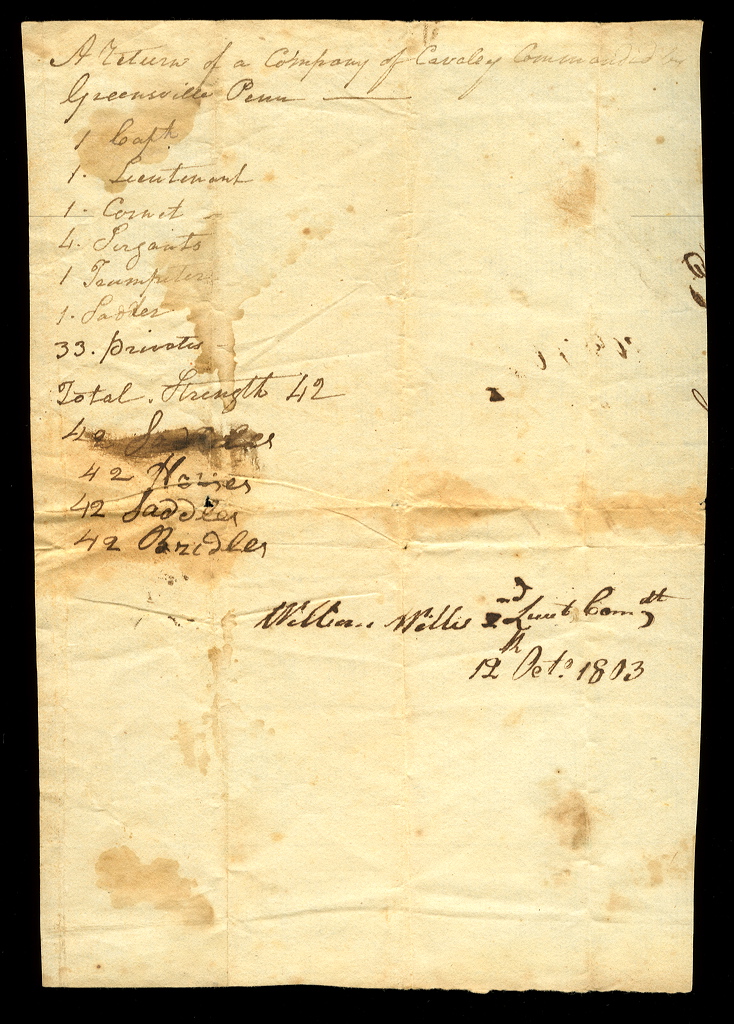 A Return of a Company of Cavaley Commanded by
Greensville Penn
1 Capt.
1. Lieutenant
1. Cornet
4. Sergants
1 Trumpeter
1. Sadler
33. privates
Total. Strength 42
42
42 Horses
42 Saddles
42 Bridles
William Willis 2nd Lieut Comdt
12th Octo. 1803